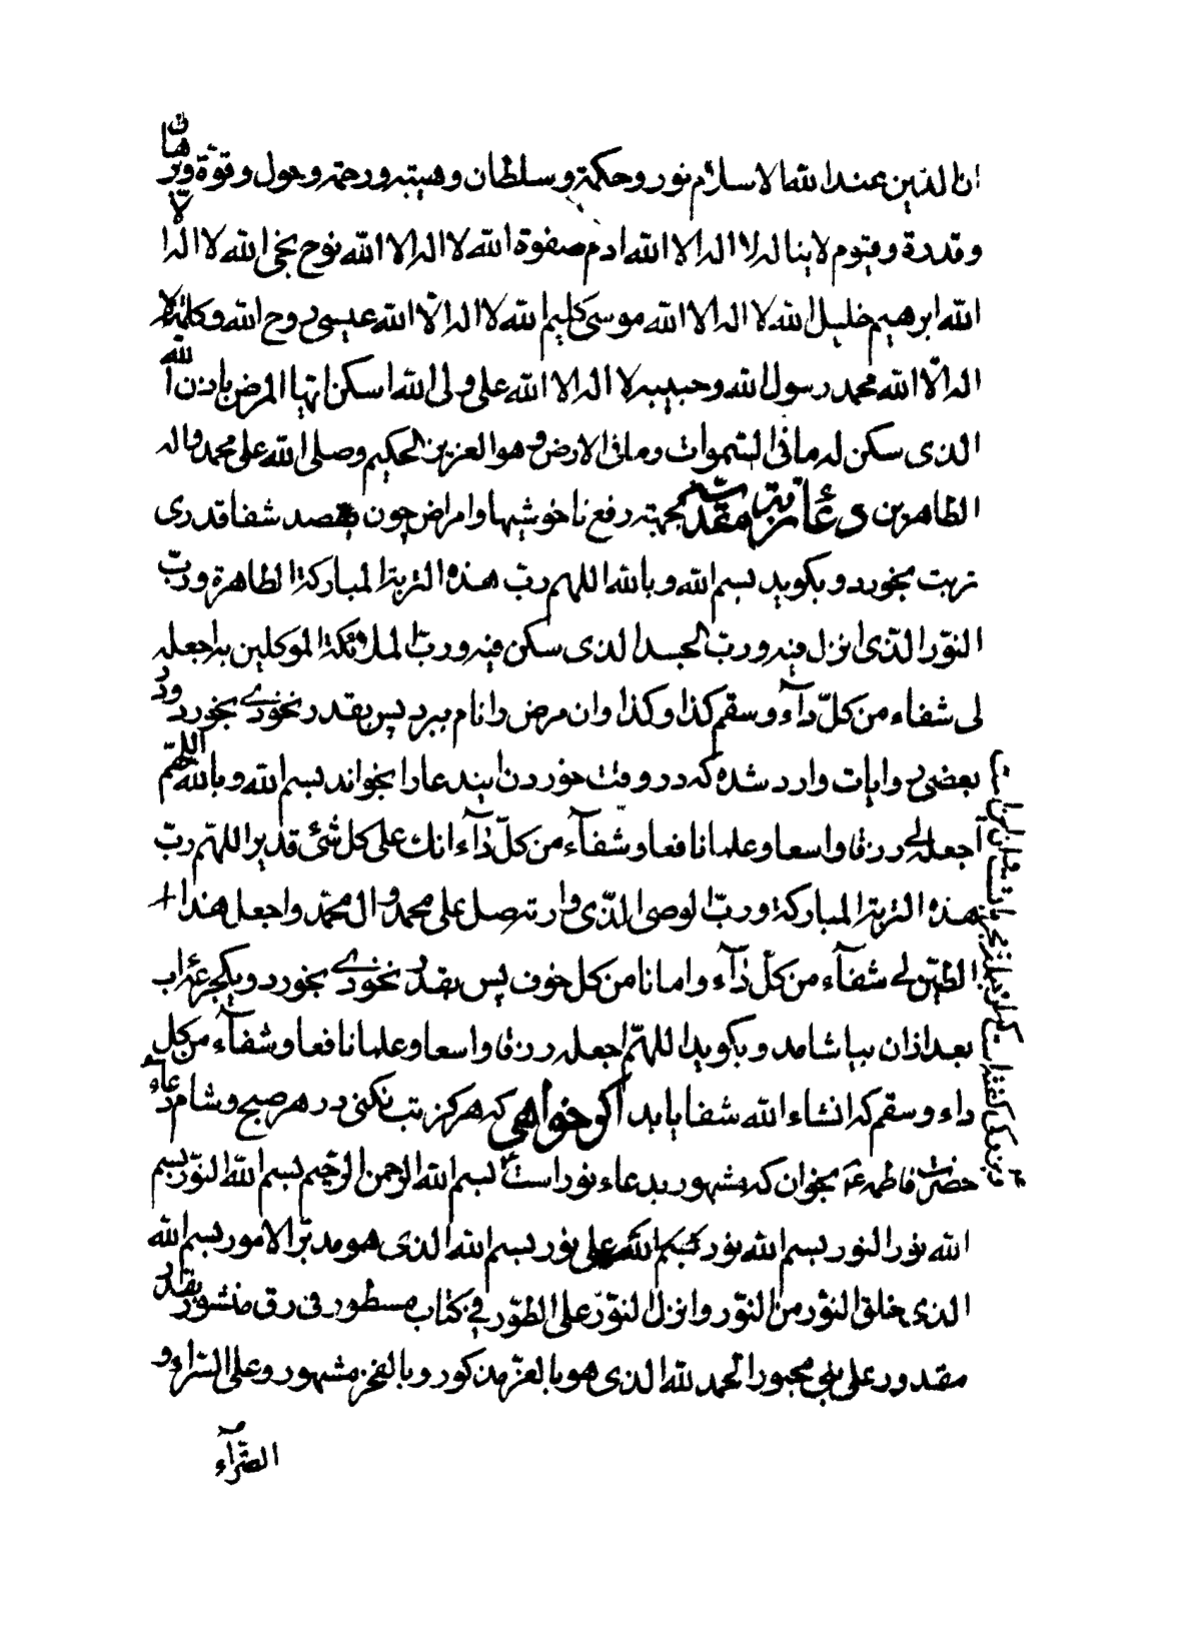 ان الدین عند الله الاسلام نور و حکمة و سلطان و هیبته و رحمة و حول و قوة و برهان
و قدرة و قیوم لا ینام لا اله الا الله ادم صفوة الله لا اله الا الله نوح نجی الله لا اله الا
الله ابرهیم خلیل الله لا اله الا الله موسی کلیم الله لا اله الّا الله عیسی روح الله و کلمته لا
اله الّا الله محمد رسول الله و حبیبه لا اله الا الله علی ولی الله اسکن ایها المرض باذن الله
الذی سکن له ما فی السّموات و ما فی الارض و هو العزیز الحکیم و صلی الله علی محمد و اله
الطاهرین دعائ تربت مقدسه بجهته رفع ناخوشیها و امراض چون بقصد شفا قدری
تربت بخورد و بکوید بسم الله و بالله اللهم ربّ هذه التربة المبارکة الطاهرة و ربّ
النّور الّذی انزل فیه و ربّ الجسد الذی سکن فیه و ربّ الملائکة الموکلین به اجعله
لی شفاء من کلّ دآء و سقم کذا و کذا و ان مرض را نام ببرد پس بقدر نخودی بخورد و در
بعضی روایات وارد شده که در وقت خوردن ایندعا را بخواند بسم الله و بالله اللهّم
اجعله لی رزقا واسعا و علما نافعا و شفآء من کلّ دآء انک علی کل شئ قدیر اللهّم ربّ
هذه التربة المبارکة و ربّ الوصی الّذی وارته صل علی محمد و ال محمّد و اجعل هذا
الطین لی شفآء من کلّ دآء و امانا من کل خوف پس بقدر نخودی بخورد و یکجرعه اب
بعد اذان بیاشامد و بکوید اللهّم اجعله رزقا واسعا و علما نافعا و شفآء من کل
داء و سقم که انشاء الله شفا یابد اکر خواهی که هرکز تب نکنی در هر صبح و شام دعاء
حضرت فاطمه ع بخوان که مشهور بدعاء نور است بسم الله الرحمن الرحیم بسم الله النّور بسم
الله نور النور بسم الله نور علی نور بسم الله الذی هو مدبّر الامور بسم الله
الذی خلق النّور من النّور و انزل النّور علی الطّور فی کتاب مسطور فی رق منشور بقدر
مقدور علی نبی محبور الحمد لله الذی هو بالعزّ مذکور و بالفخر مشهور و علی السّراء و
الضّرآء